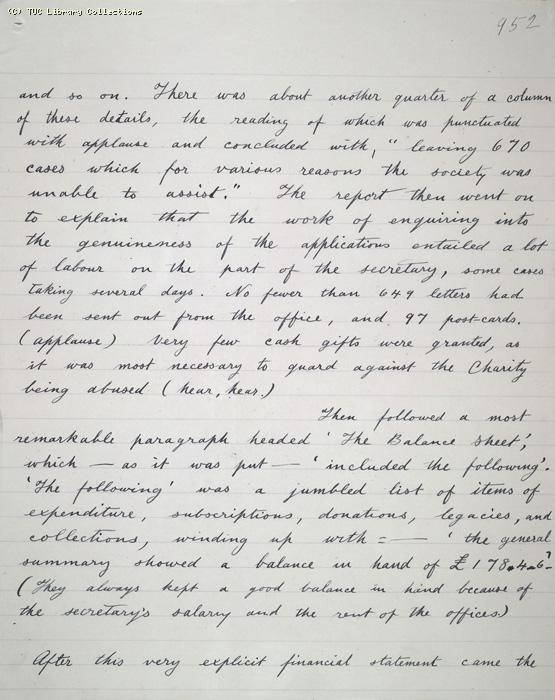 (C) TUC Library Collections
952
and so on. There was about another quarter of a column
of these details, the reading of which was punctuated
with applause and concluded with, "leaving 670
cases which for various reasons the society was
unable to assist." The report then went on
to explain that the work of enquiring into
the genuineness of the applications entailed a lot
of labour on the part of the secretary, some cases
taking several days. No fewer than 649 letters had
been sent out from the office, and 97 post-cards.
(applause) Very few cash gifts were granted, as
it was most necessary to guard against the Charity
being abused (hear, hear.)
Then followed a most
remarkable paragraph headed 'The Balance Sheet',
which — as it was put — 'included the following'.
'The following' was a jumbled list of items of
expenditure, subscriptions, donations, legacies, and
collections, winding up with :— 'the general
summary showed a balance in hand of £178.4.6'.
(They always kept a good balance in hand because of
the secretary's salary and the rent of the offices.)
After this very explicit financial statement came the